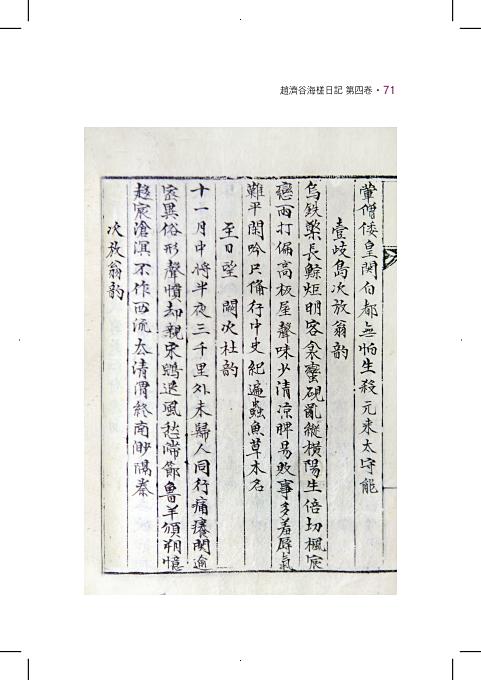 趙濟谷海槎日記 第四卷 • 71
葷僧倭皇関白都無怕生殺元來太守能
壹岐島次放翁韵
烏鉄藥長鯨炬明客衾蜜硯亂縱橫陽生倍切楓宸
戀雨打偏高板屋聲味少清凉脾易敗事多羞辱氣
難平閑吟只備行中史紀遍蟲魚草木名
至日望 闕次杜韵
十一月中將半夜三千里外未歸人同行痛癢関逾
密異俗形聲慣却親宋鷁退風愁滯節魯羊頒朔憶
趍宸滄溟不作西流太清渭終南眇隔秦
次放翁韵